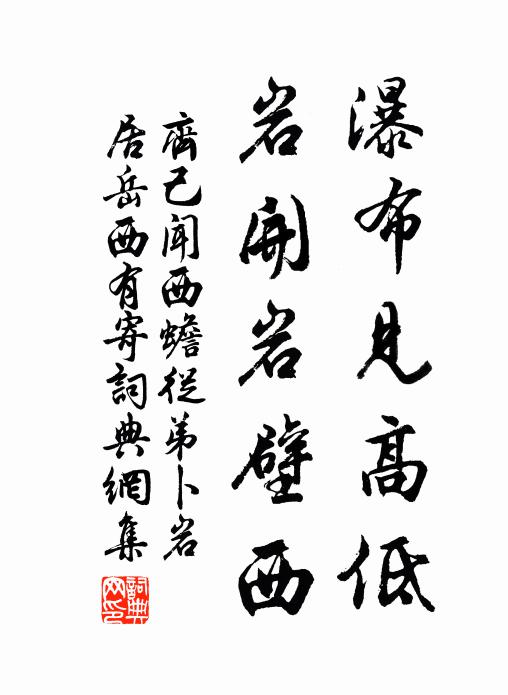 瀑布見高低
岩開岩壁西
齊己聞西蟾從弟卜岩
居岳西有寄詞典網集
詞典
网印